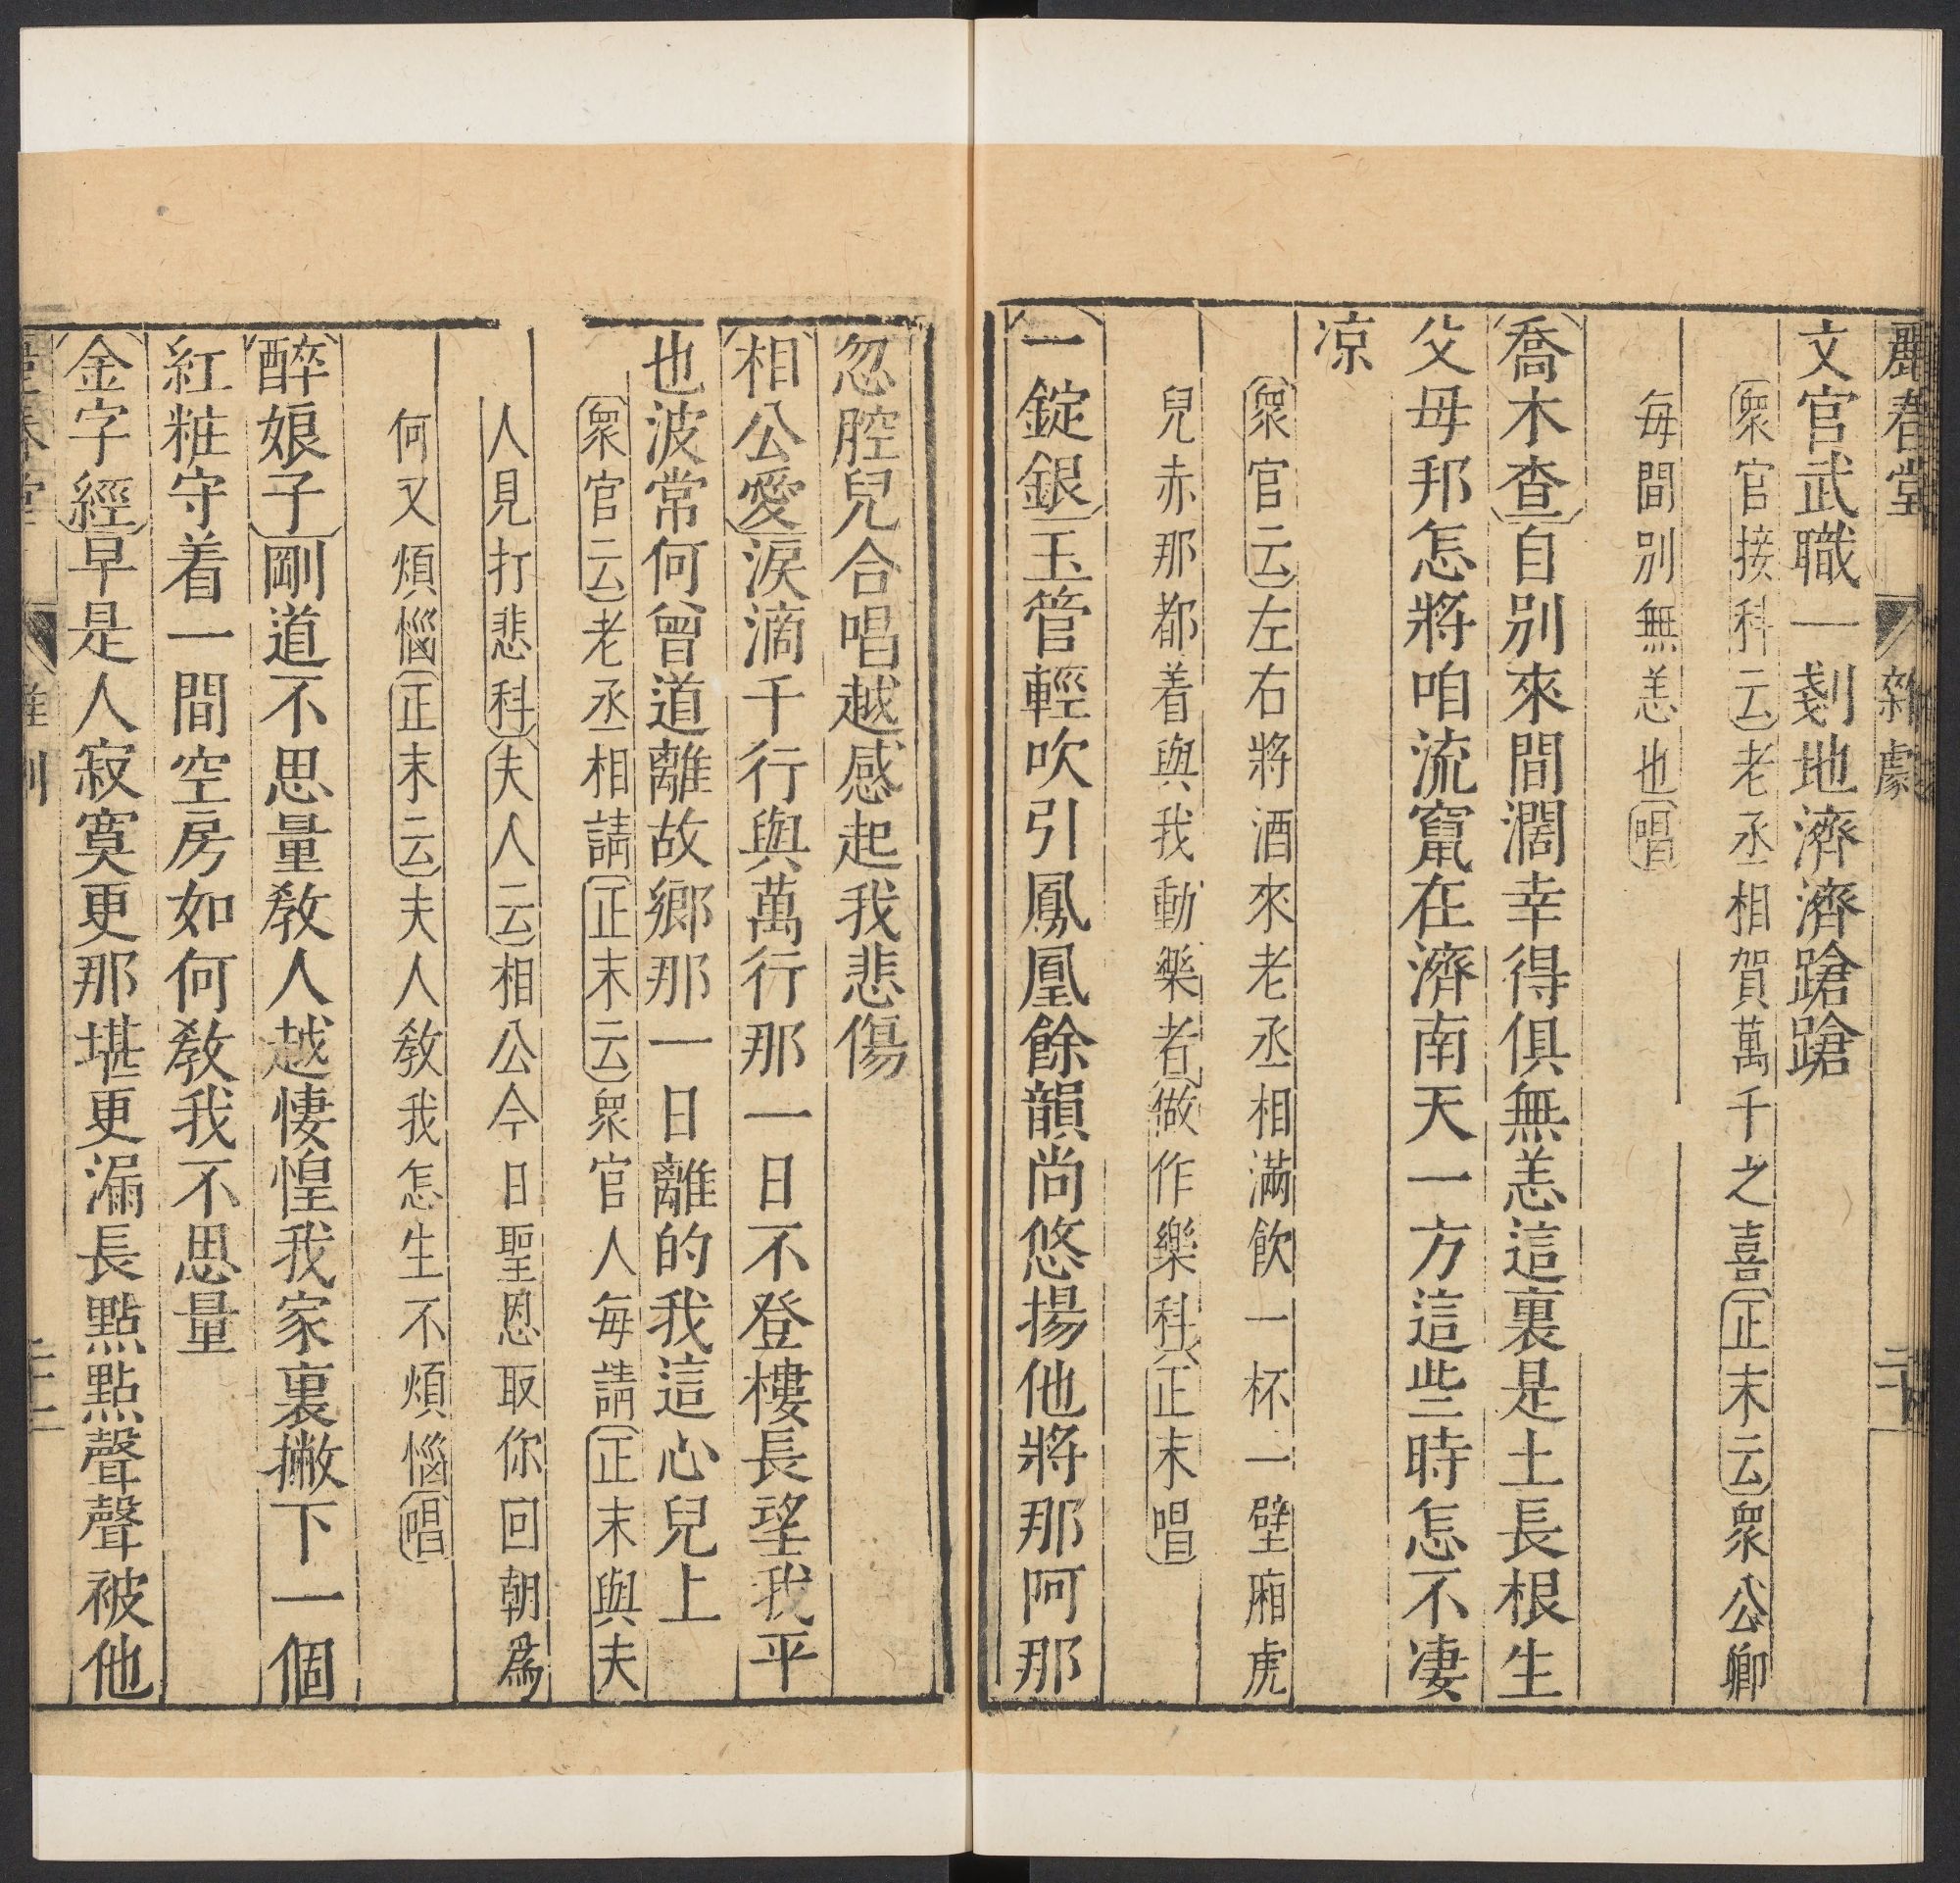 麗春堂 雜劇 二十一
文官武職一剗地濟濟蹌蹌
衆官接科云老丞相賀萬千之喜正末云衆公卿
每間別無恙也唱
喬木查自別來間濶幸得俱無恙這裏是土長根生
父母邦怎將咱流竄在濟南天一方這些時怎不凄
凉
衆官云左右將酒來老丞相滿飲一杯一壁廂虎
兒赤那都着與我動樂者做作樂科正末唱
一錠銀玉管輕吹引鳳凰餘韻尚悠揚他將那阿那
忽腔兒合唱越感起我悲傷
相公愛淚滴千行與萬行那一日不登樓長望我平
也波常何曾道離故鄉那一日離的我這心兒上
衆官云老丞相請正末云衆官人每請正末與夫
人見打悲科夫人云相公今日聖恩取你回朝爲
何又煩惱正末云夫人教我怎生不煩惱唱
醉娘子剛道不思量教人越悽惶我家裏撇下一個
紅粧守着一間空房如何教我不思量
金字經早是人寂寞更那堪更漏長點點聲聲被他